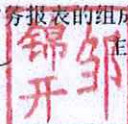 务报表的组成
主
邹
锦开